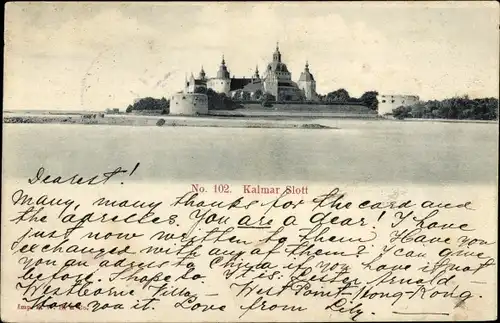 No. 102. Kalmar Slott
Dearest!
Many, many thanks for the card and
the adresses. You are a dear! I have
just now written to them. Have you
exchanged with any of them? I can give
you an adress China if you have it not
before. I hope so. Miss Arnold -
Westborne Villa - West Point, Hong-Kong.
Have you it. Love from Lily.
Imp.